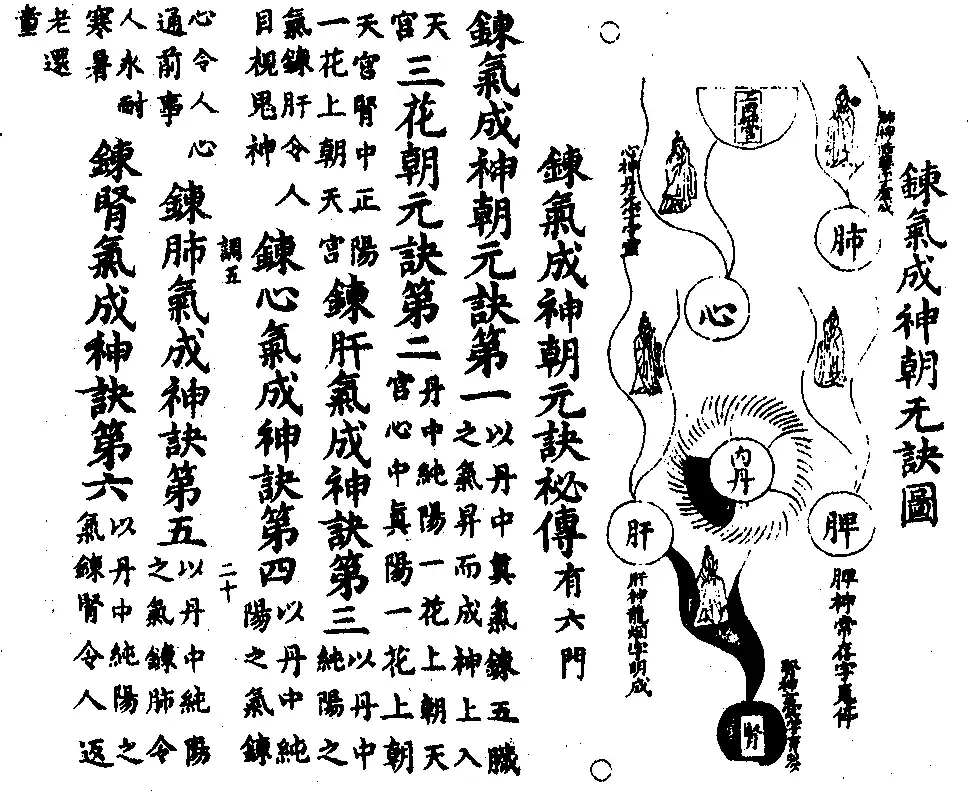 鍊氣成神朝元訣圖
肺神皓華字虛成
肺
脾
脾神常在字魂停
心
內丹
腎神玄冥字育嬰
腎
心神丹元字守靈
肝
肝神龍烟字明成
鍊氣成神朝元訣祕傳有六門
鍊氣成神朝元訣第一
以丹中真氣鍊五臟
之氣昇而成神上入
天
宮
三花朝元訣第二
丹中純陽一花上朝天
宮心中真陽一花上朝
天宮腎中正陽
一花上朝天宮
鍊肝氣成神訣第三
以丹中
純陽之
氣鍊肝令人
目視鬼神
鍊心氣成神訣第四
以丹中純
陽之氣鍊
調五
二十
心令人心
通前事
鍊肺氣成神訣第五
以丹中純陽
之氣鍊肺令
人永耐
寒暑
鍊腎氣成神訣第六
以丹中純陽之
氣鍊腎令人返
老還
童